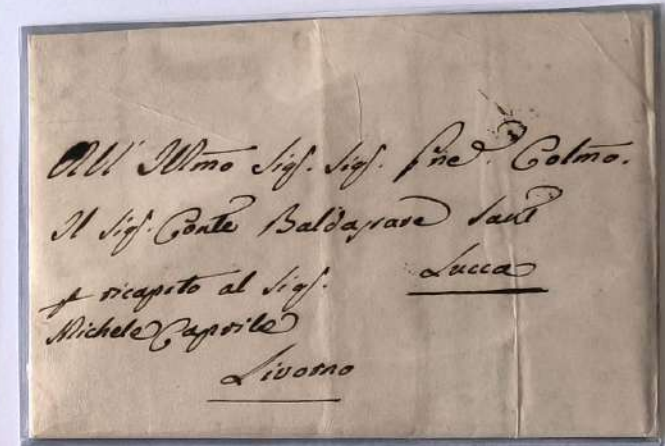 All' Illmo Sigr. Sigr. Pne. Colmo.
Il Sigr. Conte Baldassare
Lucca
ricapito al Sigr.
Michele Caprile
Livorno